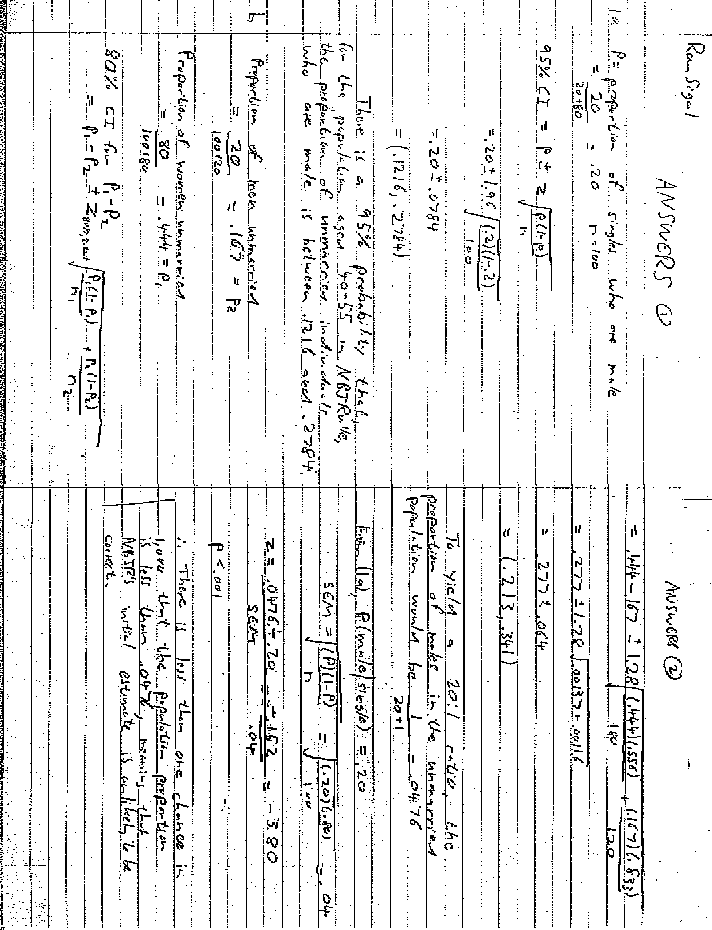 Ram Sigal
ANSWERS ①
1a P = proportion of singles who are male
= 20 / 20+80 = .20 n=100
95% CI = P ± z √(P(1-P) / n)
= .20 ± 1.96 √((.2)(1-.2) / 100)
= .20 ± .0784
= (.1216, .2784)
There is a 95% probability that,
for the population aged 40-55 in
the proportion of unmarried individuals
who are male is between .1216 and .2784.
b Proportion of men unmarried
= 20 / 100+20 = .167 = P₂
Proportion of women unmarried
= 80 / 100+80 = .444 = P₁
80% CI for P₁-P₂
= P₁-P₂ ± √(P₁(1-P₁) / n₁ + P₂(1-P₂) / n₂)
ANSWERS ②
= .444 - .167 ± 1.28 √((.444)(.556) / 180 + (.167)(.833) / 120)
= .277 ± 1.28 √(.00137 + .00116)
= .277 ± .064
= (.213, .341)
To yield a 20:1 ratio, the
proportion of males in the unmarried
population would be 1 / 20+1 = .0476
From (1a), P(male|single) = .20
SEM = √((P)(1-P) / n) = √((.20)(.80) / 100) = .04
z = .0476 - .20 / SEM = -.152 / .04 = -3.80
P < .001
∴ There is less than one chance in
1,000 that the population proportion
is less than .0476, meaning that
initial estimate is unlikely to be
correct.